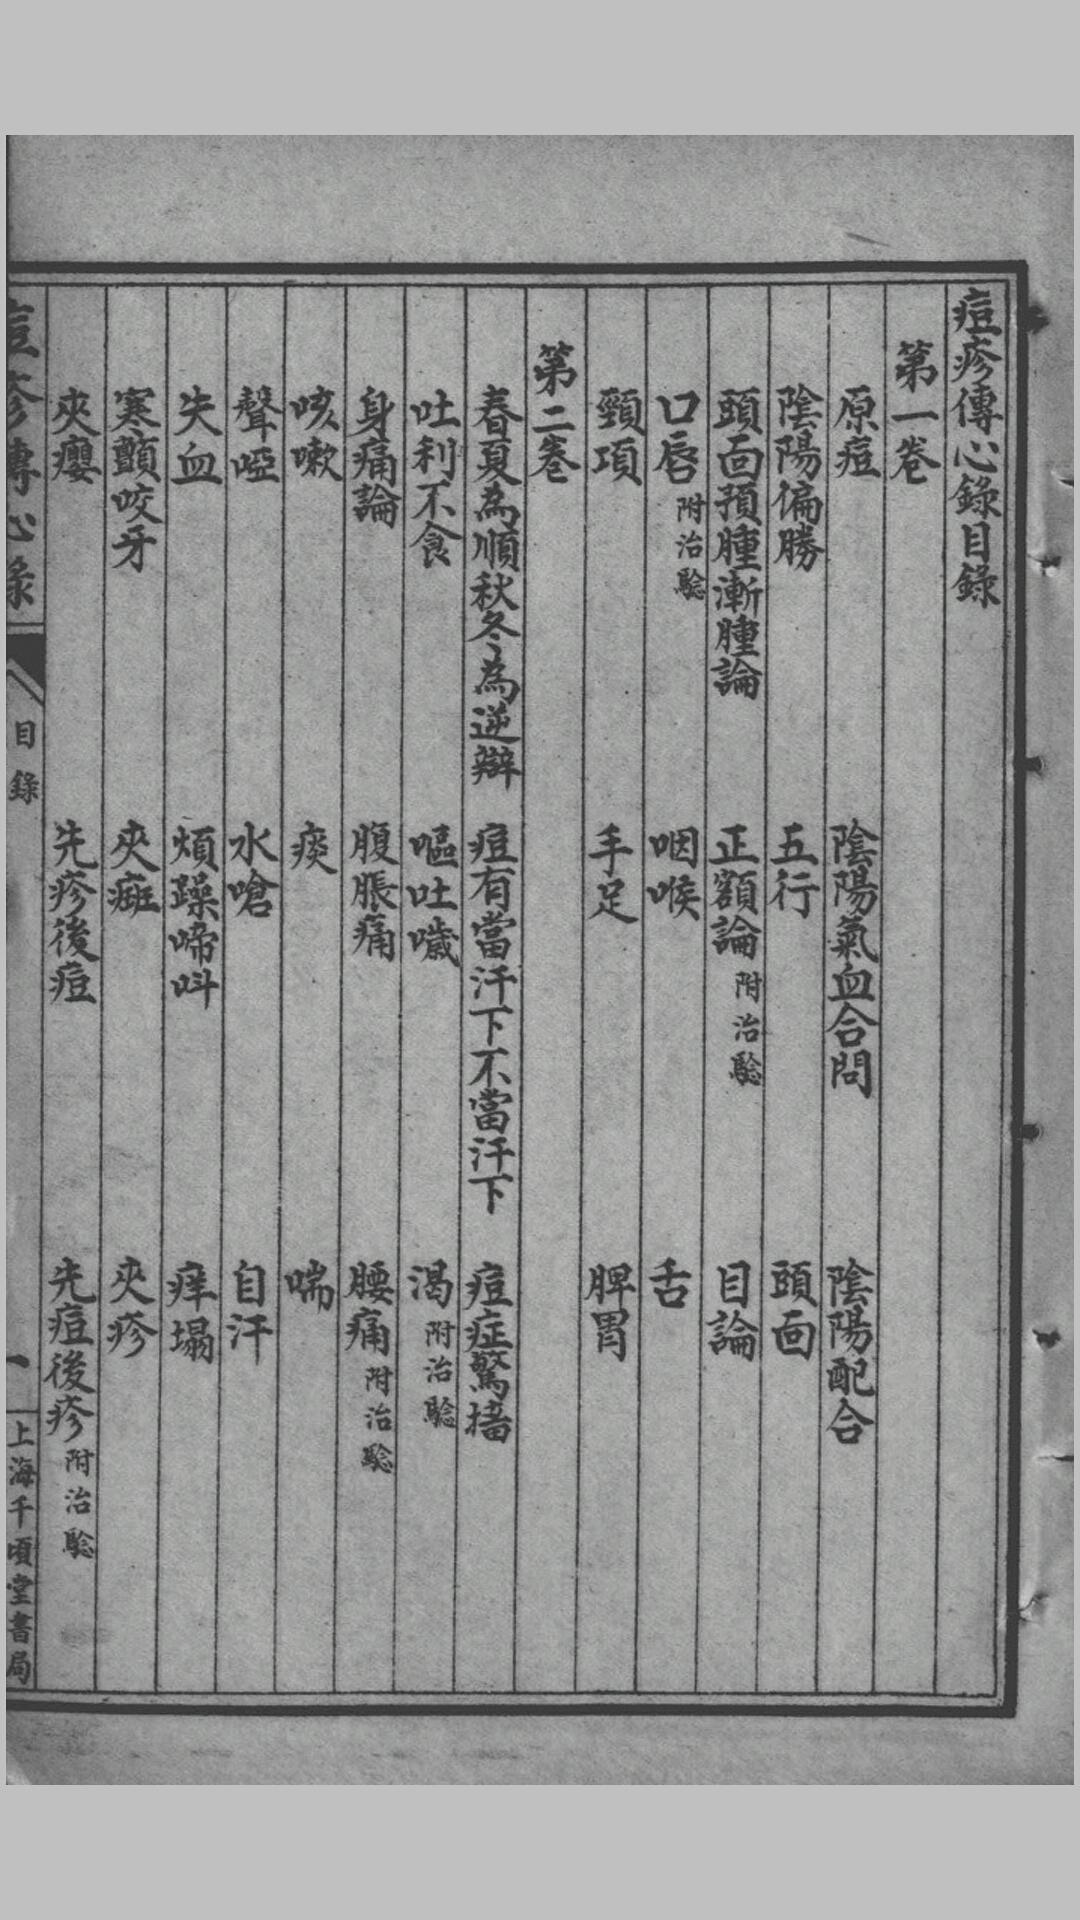 痘疹傳心錄目錄
第一卷
原痘 陰陽氣血合問 陰陽配合
陰陽偏勝 五行 頭面
頭面預腫漸腫論 正額論附治驗 目論
口唇附治驗 咽喉 舌
頸項 手足 脾胃
第二卷
春夏為順秋冬為逆辯 痘有當汗下不當汗下 痘症驚搐
吐利不食 嘔吐噦 渴附治驗
身痛論 腹脹痛 腰痛附治驗
咳嗽 痰 喘
聲啞 水嗆 自汗
失血 煩躁啼呌 痒塌
寒顫咬牙 夾癍 夾疹
夾癭 先疹後痘 先痘後疹附治驗
痘疹傳心錄 目錄 一 上海千頃堂書局